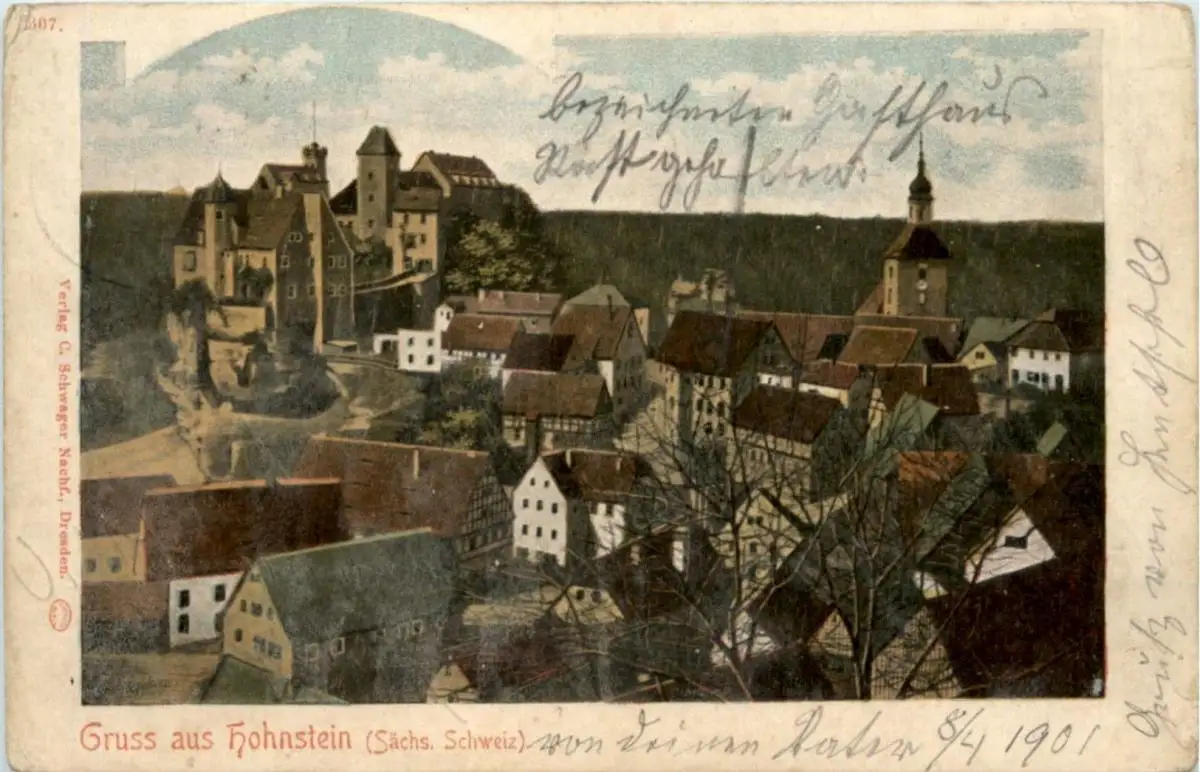 307.
bezeichneten Gasthaus
Rast gehalten.
Verlag C. Schwager Nachf., Dresden.
Gruss aus Hohnstein (Sächs. Schweiz)
von deinen Vater 8/4 1901
Gruß von